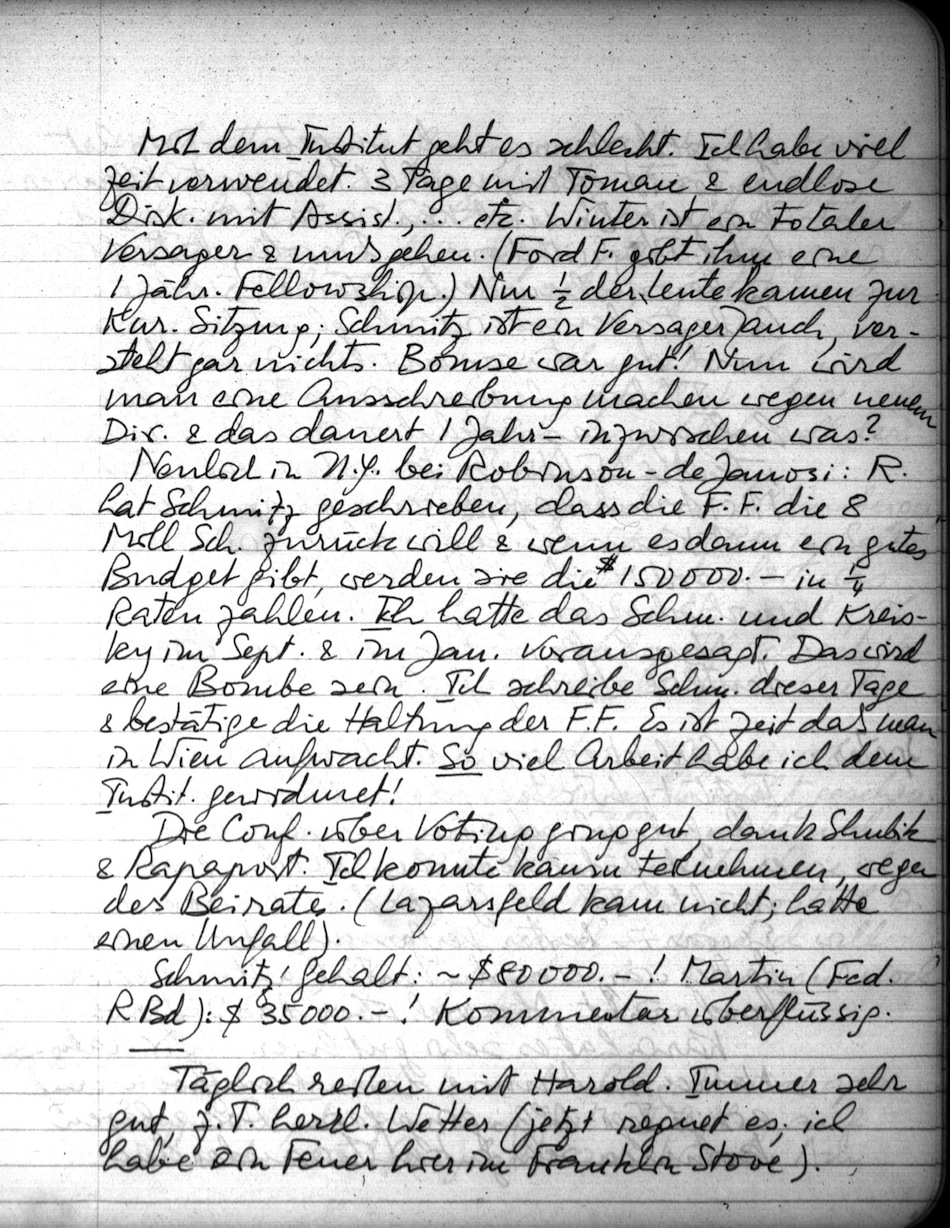 Mit dem Institut geht es schlecht. Ich habe viel
Zeit verwendet. 3 Tage mit Toman & endlose
Disk. mit Assist., .. etc. Winter ist ein totaler
Versager & muß gehen. (Ford F. gibt ihm eine
1 Jähr. Fellowship.) Nur ½ der Leute kamen zur
Kur. Sitzung; Schmitz ist ein Versager auch, ver-
steht gar nichts. Bomse war gut! Nun wird
man eine Ausschreibung machen wegen neuem
Dir. & das dauert 1 Jahr – inzwischen was?
Neulich in N.Y. bei Robinson – de Janosi: R.
hat Schmitz geschrieben, dass die F.F. die 8
Mill Sch. zurück will & wenn es dann ein gutes
Budget gibt, werden sie die $150000.– in ¼
Raten zahlen. Ich hatte das Schm. und Kreis-
ky im Sept. & im Jan. vorausgesagt. Das wird
eine Bombe sein. Ich schreibe Schm. dieser Tage
& bestätige die Haltung der F.F. Es ist Zeit daß man
in Wien aufwacht. So viel Arbeit habe ich dem
Instit. gewidmet!
Die Conf. über Voting ging gut, dank Shubik
& Rapaport. Ich konnte kaum teilnehmen, wegen
des Beirats. (Lazarsfeld kam nicht; hatte
einen Unfall).
Schmitz' Gehalt: ~ $80000.– ! Martin (Fed.
R Bd): $ 35000.– ! Kommentar überflüssig.
Täglich reiten mit Harold. Immer sehr
gut, z.T. herrl. Wetter (jetzt regnet es; ich
habe ein Feuer hier im Franklin Stove).